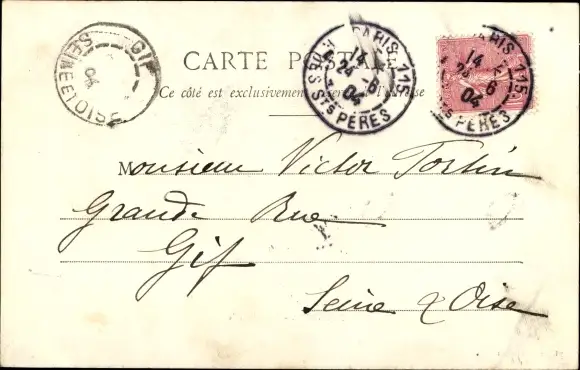 CARTE POSTALE
Ce côté est exclusivement réservé à l'adresse
GIF
SEINE ET OISE
04
PARIS 115
R. DES Sts PÈRES
14
24 - 6
04
PARIS 115
14
24 - 6
04
Sts PÈRES
Monsieur Victor Tortin
Grande Rue
Gif
Seine & Oise